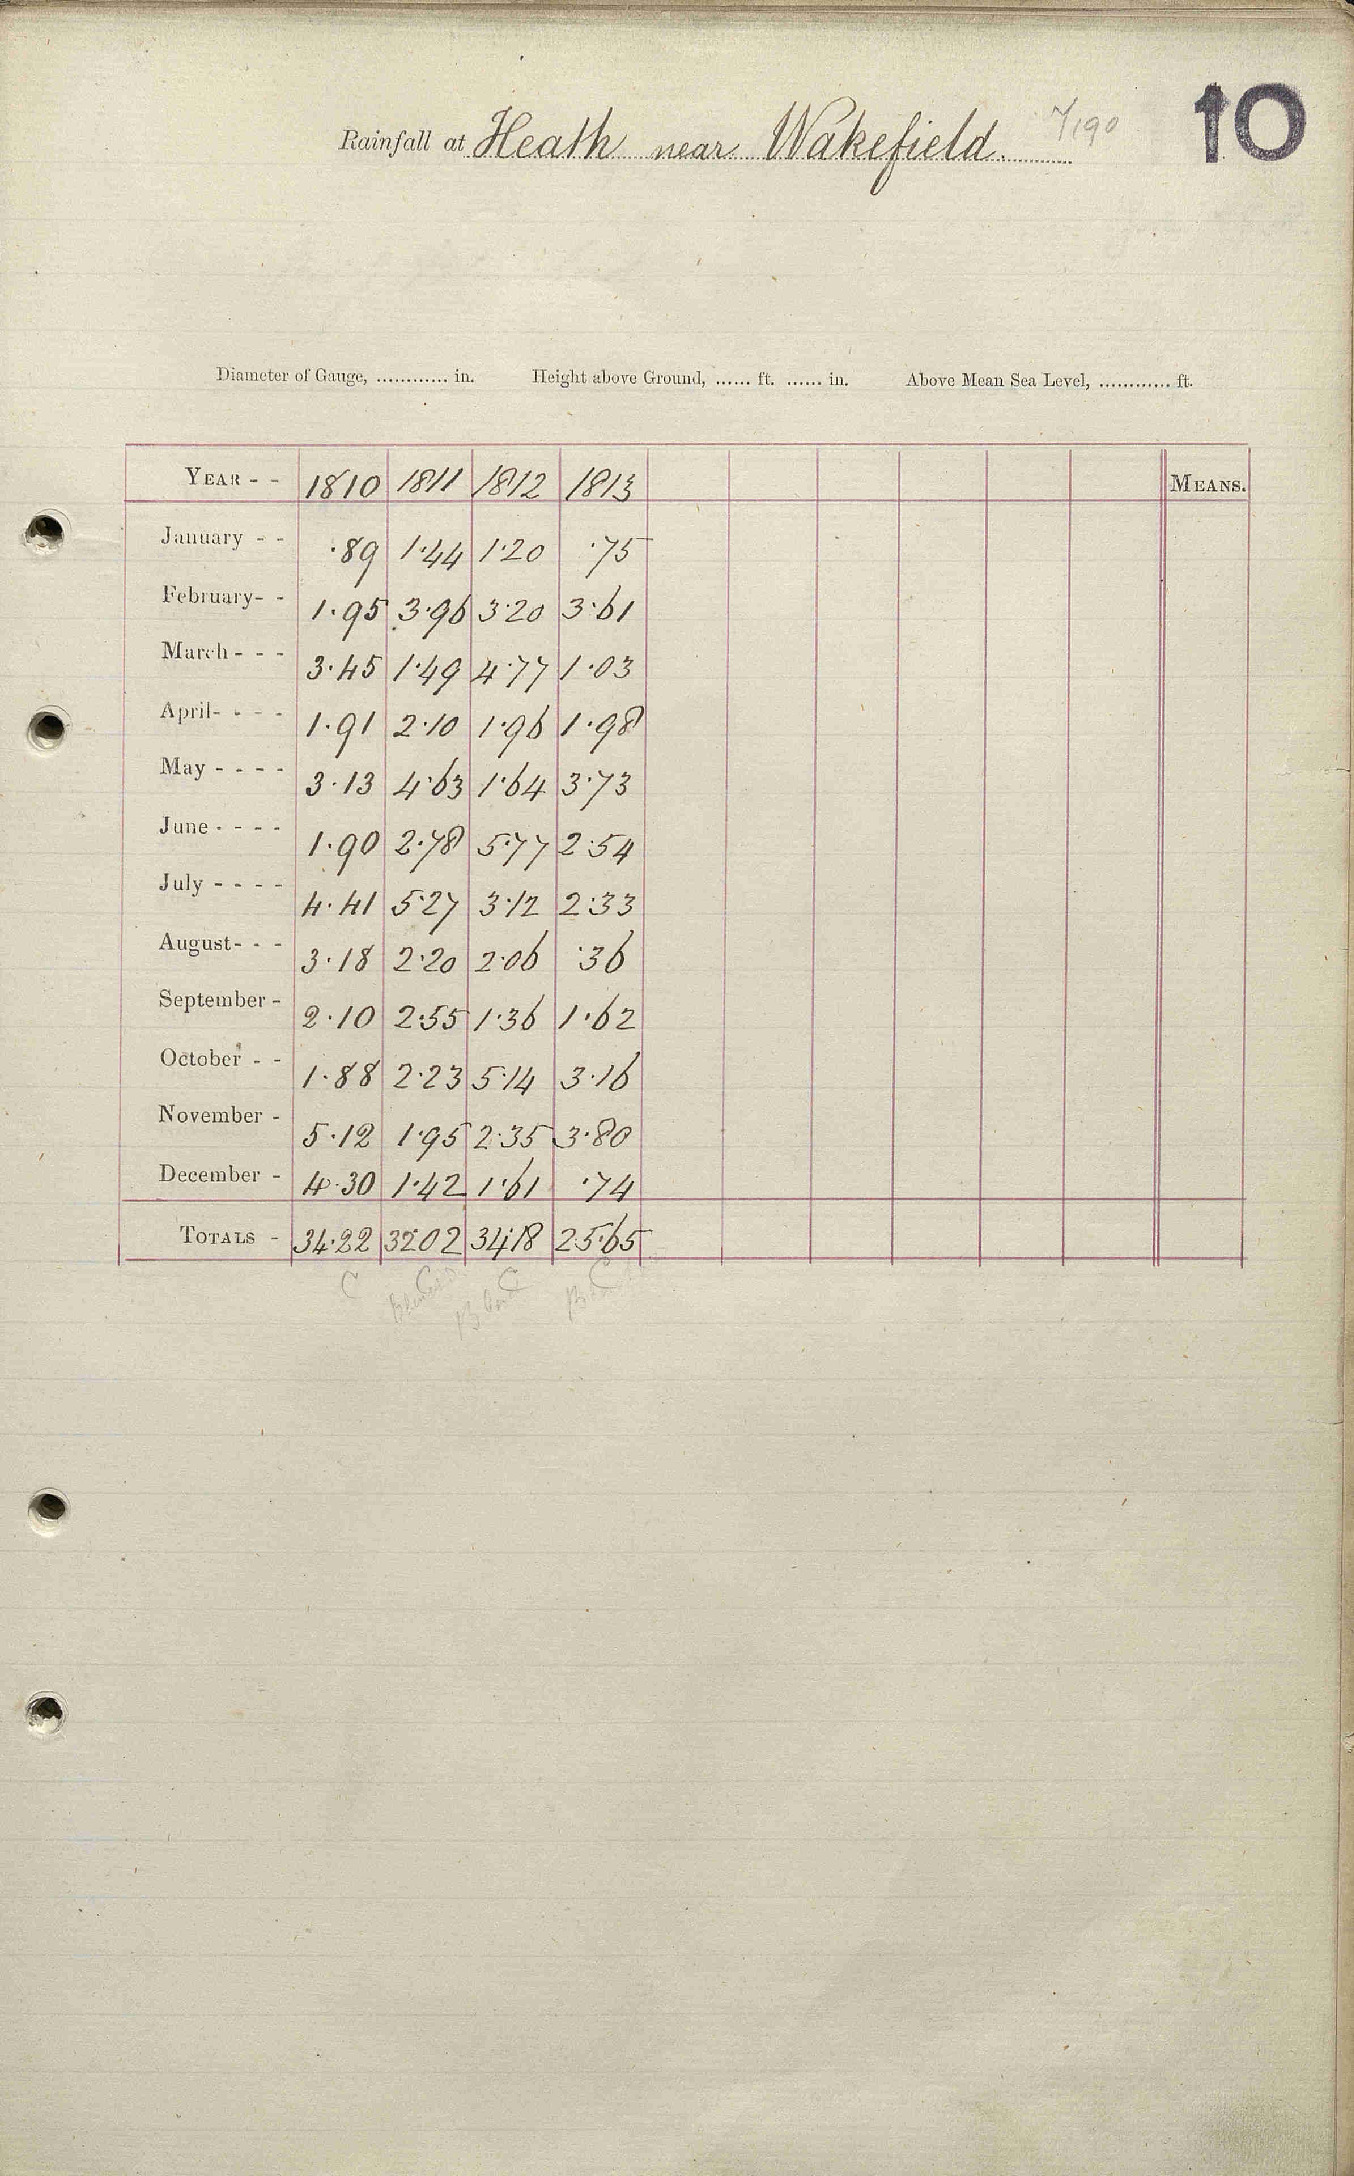 10
7/190
Rainfall at Heath near Wakefield.
Diameter of Gauge, ............ in. Height above Ground, ...... ft. ...... in. Above Mean Sea Level, ............ ft.
YEAR - - 1810 1811 1812 1813 MEANS.
January - - .89 1.44 1.20 .75
February- - 1.95 3.96 3.20 3.61
March - - - 3.45 1.49 4.77 1.03
April- - - - 1.91 2.10 1.96 1.98
May - - - - 3.13 4.63 1.64 3.73
June - - - - 1.90 2.78 5.77 2.54
July - - - - 4.41 5.27 3.12 2.33
August- - - 3.18 2.20 2.06 .36
September - 2.10 2.55 1.36 1.62
October - - 1.88 2.23 5.14 3.16
November - 5.12 1.95 2.35 3.80
December - 4.30 1.42 1.61 .74
TOTALS - 34.22 32.02 34.18 25.65
C C C C